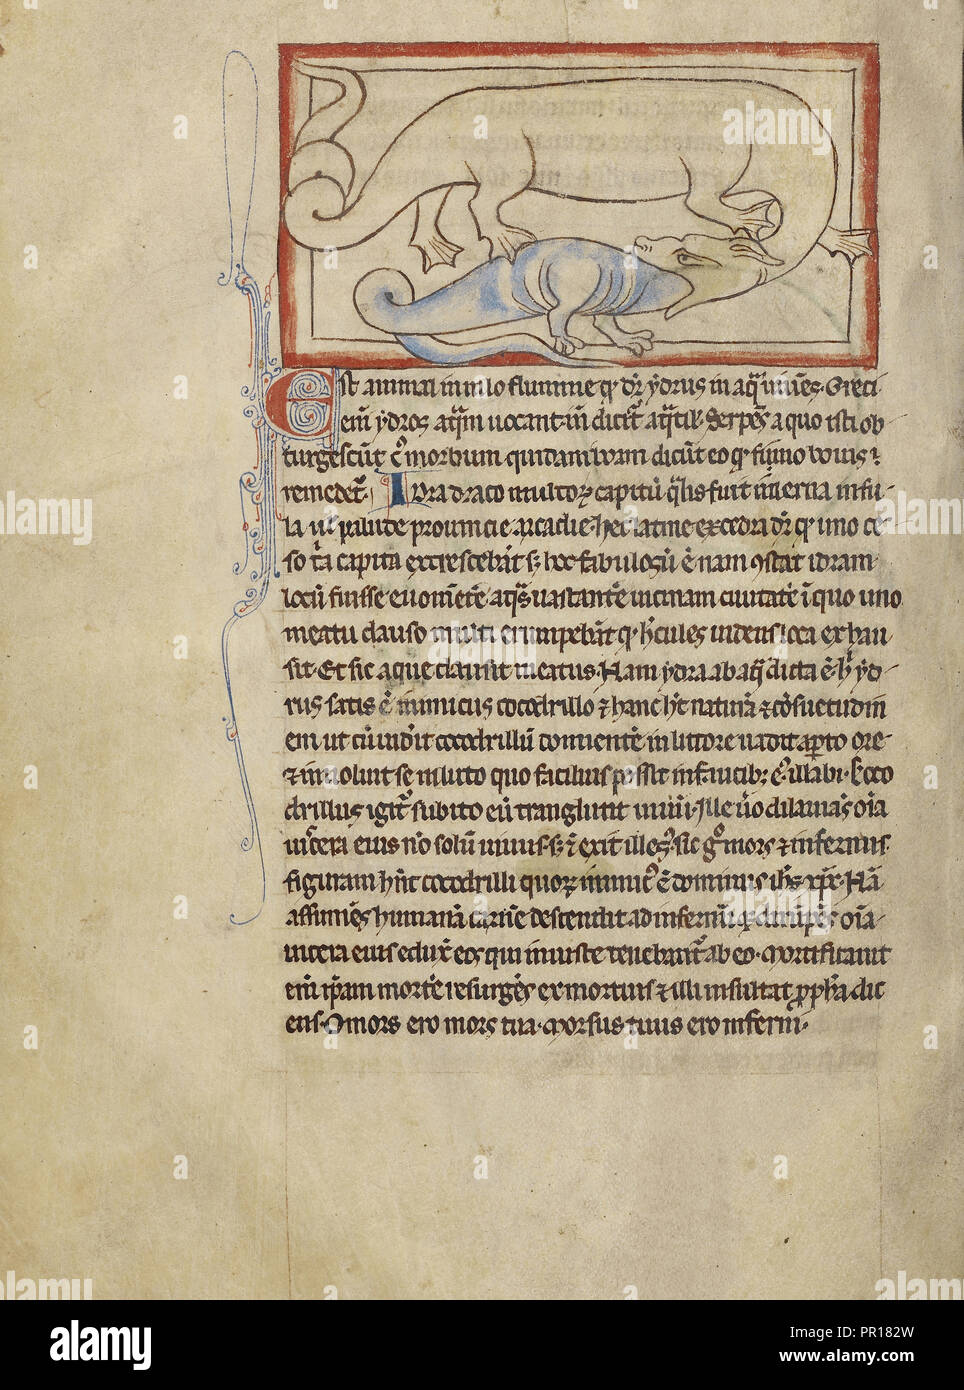 Est animal in nilo flumine q̄ dr̄ ydrus in aq̄ uiuēs. Greci
em̄ ydros aquam uocant. in̄ dicit̄ aq̄tilꝰ serpēs a quo icti ob
turgescūt. cꝰ morbum quidam boam dicūt eo q̄ fimo bouis
remedet̄. Idra draco multoꝝ capitū q̄lis fuit in lerna insu
la ul̄ palude prouincie arcadie. hec latine excedra dr̄ q̄ uno ce
so tͥa capita excrescebāt. sꝫ hoc fabulosū ē. nam ꝯstat idram
locū fuisse euomētē aq̄s uastantē uicinam ciuitatē ī quo uno
meatu clauso multi erumpebāt. q̄ hercules uidens loca exhau
sit. Et sic aque clausit meatus. Nam ydra ab aq̄ dicta ē. hͥ yd
rus satis ē inimicus cocodrillo ⁊ hanc ht̄ naturā ⁊ cōsuetudin
em ut cū uiderit cocodrillū dormientē in littore uadit apto ore
⁊ inuoluit se in luto quo facilius possit in faucibꝫ eꝰ illabi. Coco
drillus igit̄ subito eū transglutit uiuū. Ille ūo dilanians oīa
uiscera eius nō solū uiuus sꝫ ⁊ exit illesꝰ. sic gͦ mors ⁊ infernus
figuram hn̄t cocodrilli quoꝝ inimicꝰ ē dominus ihs xpc. Nā
assumēs humanā carnē descendit ad infernū ⁊ dirūpēs oīa
uicera eius eduxit eos qui iniuste tenebantͬ ab eo. Mortificauit
em̄ ip̄am mortē resurgēs ex mortuis ⁊ illi insultat ꝓph̄a dic
ens. O mors ero mors tua. morsus tuus ero inferni.
alamy
Image ID: PR182W
www.alamy.com